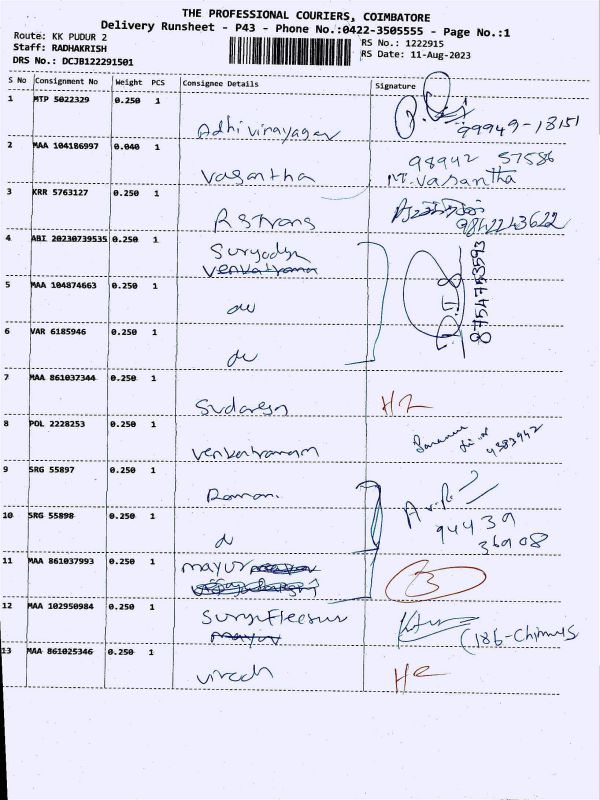 THE PROFESSIONAL COURIERS, COIMBATORE
Delivery Runsheet - P43 - Phone No.:0422-3505555 - Page No.:1
Route: KK PUDUR 2
RS No.: 1222915
Staff: RADHAKRISH
RS Date: 11-Aug-2023
DRS No.: DCJB122291501
S No Consignment No Weight PCS Consignee Details Signature
1 MTP 5022329 0.250 1
Adhi vinayager 99949-18151
2 MAA 104186997 0.040 1 98942 57586
Vasantha M. Vasantha
3 KRR 5763127 0.250 1
9842243622
4 ABI 20230739535 0.250 1
Venkatrama
5 MAA 104874663 0.250 1 8754753593
do
6 VAR 6185946 0.250 1
do
7 MAA 861037344 0.250 1
8 POL 2228253 0.250 1
Venkatramam
9 SRG 55897 0.250 1 Raman.
10 SRG 55898 0.250 1 94439
36908
11 MAA 861037993 0.250 1 mayur
12 MAA 102950984 0.250 1
mayur
13 MAA 861025346 0.250 1